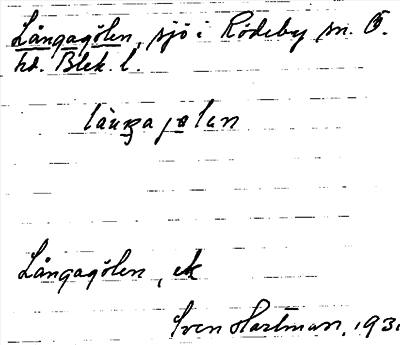 Långagölen, sjö i Rödeby sn. Ö.
hd. Blek. l.
Långagölen, ek
Sven Hartman, 193